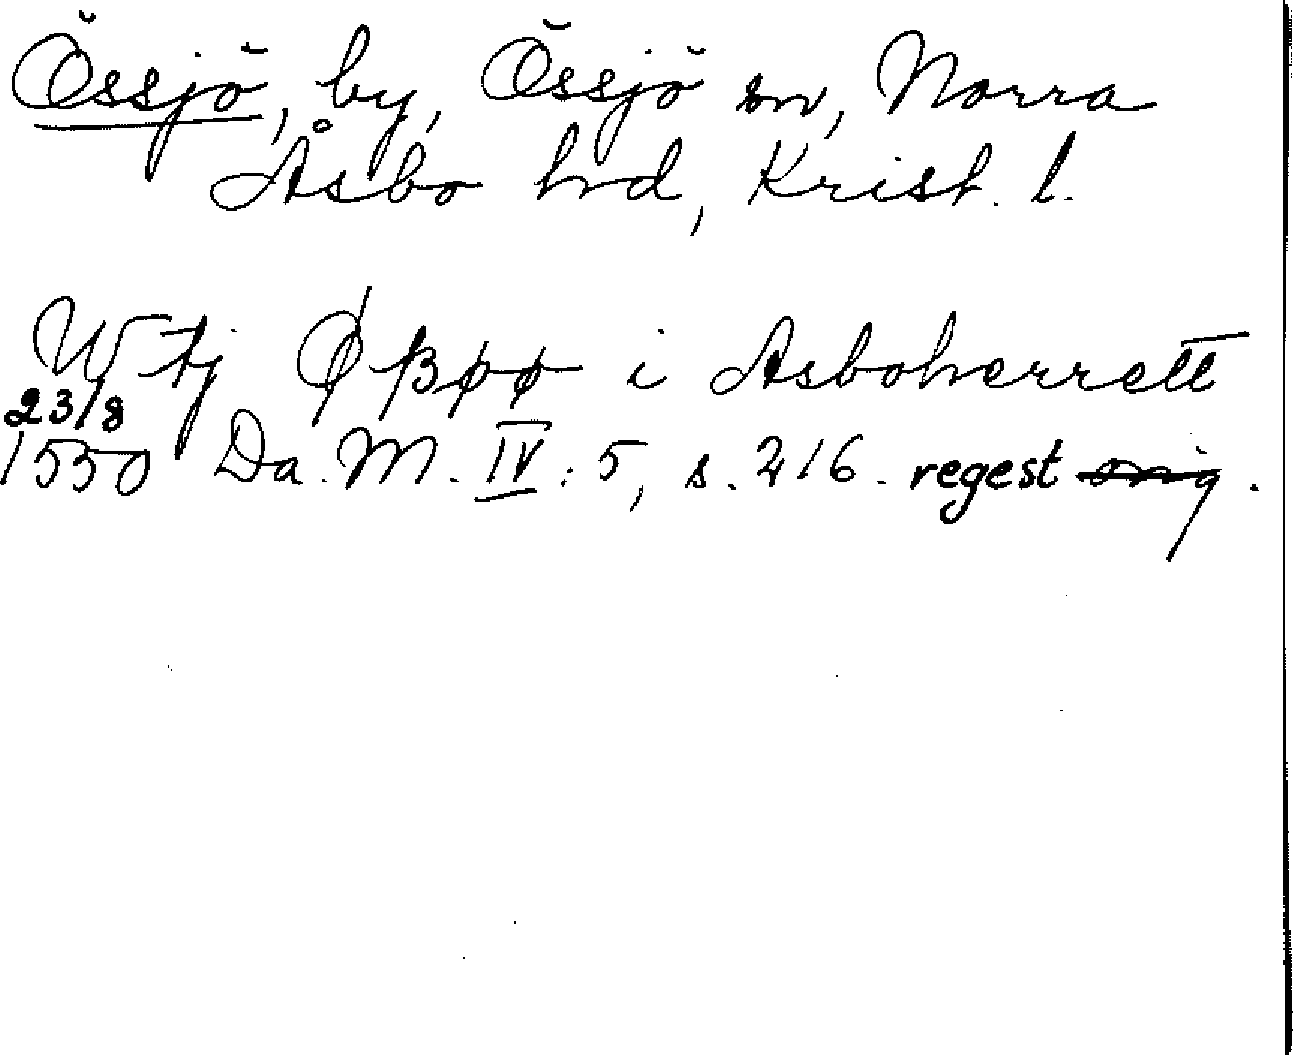 Össjö, by, Össjö sn, Norra
Åsbo hrd, Krist. l.
Wtj Øßøø i Asboherrett
23/8
1550 Da. M. IV: 5, s. 216. regest orig.